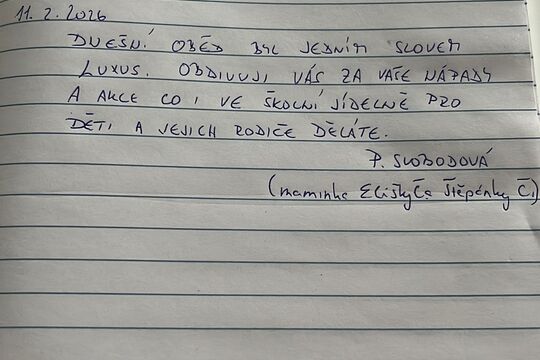 11. 2. 2026
DNEŠNÍ OBĚD BYL JEDNÍM SLOVEM
LUXUS. OBDIVUJI VÁS ZA VAŠE NÁPADY
A AKCE CO I VE ŠKOLNÍ JÍDELNĚ PRO
DĚTI A JEJICH RODIČE DĚLÁTE.
P. SLOBODOVÁ
(maminka Elišky Č. a Štěpánky Č.)